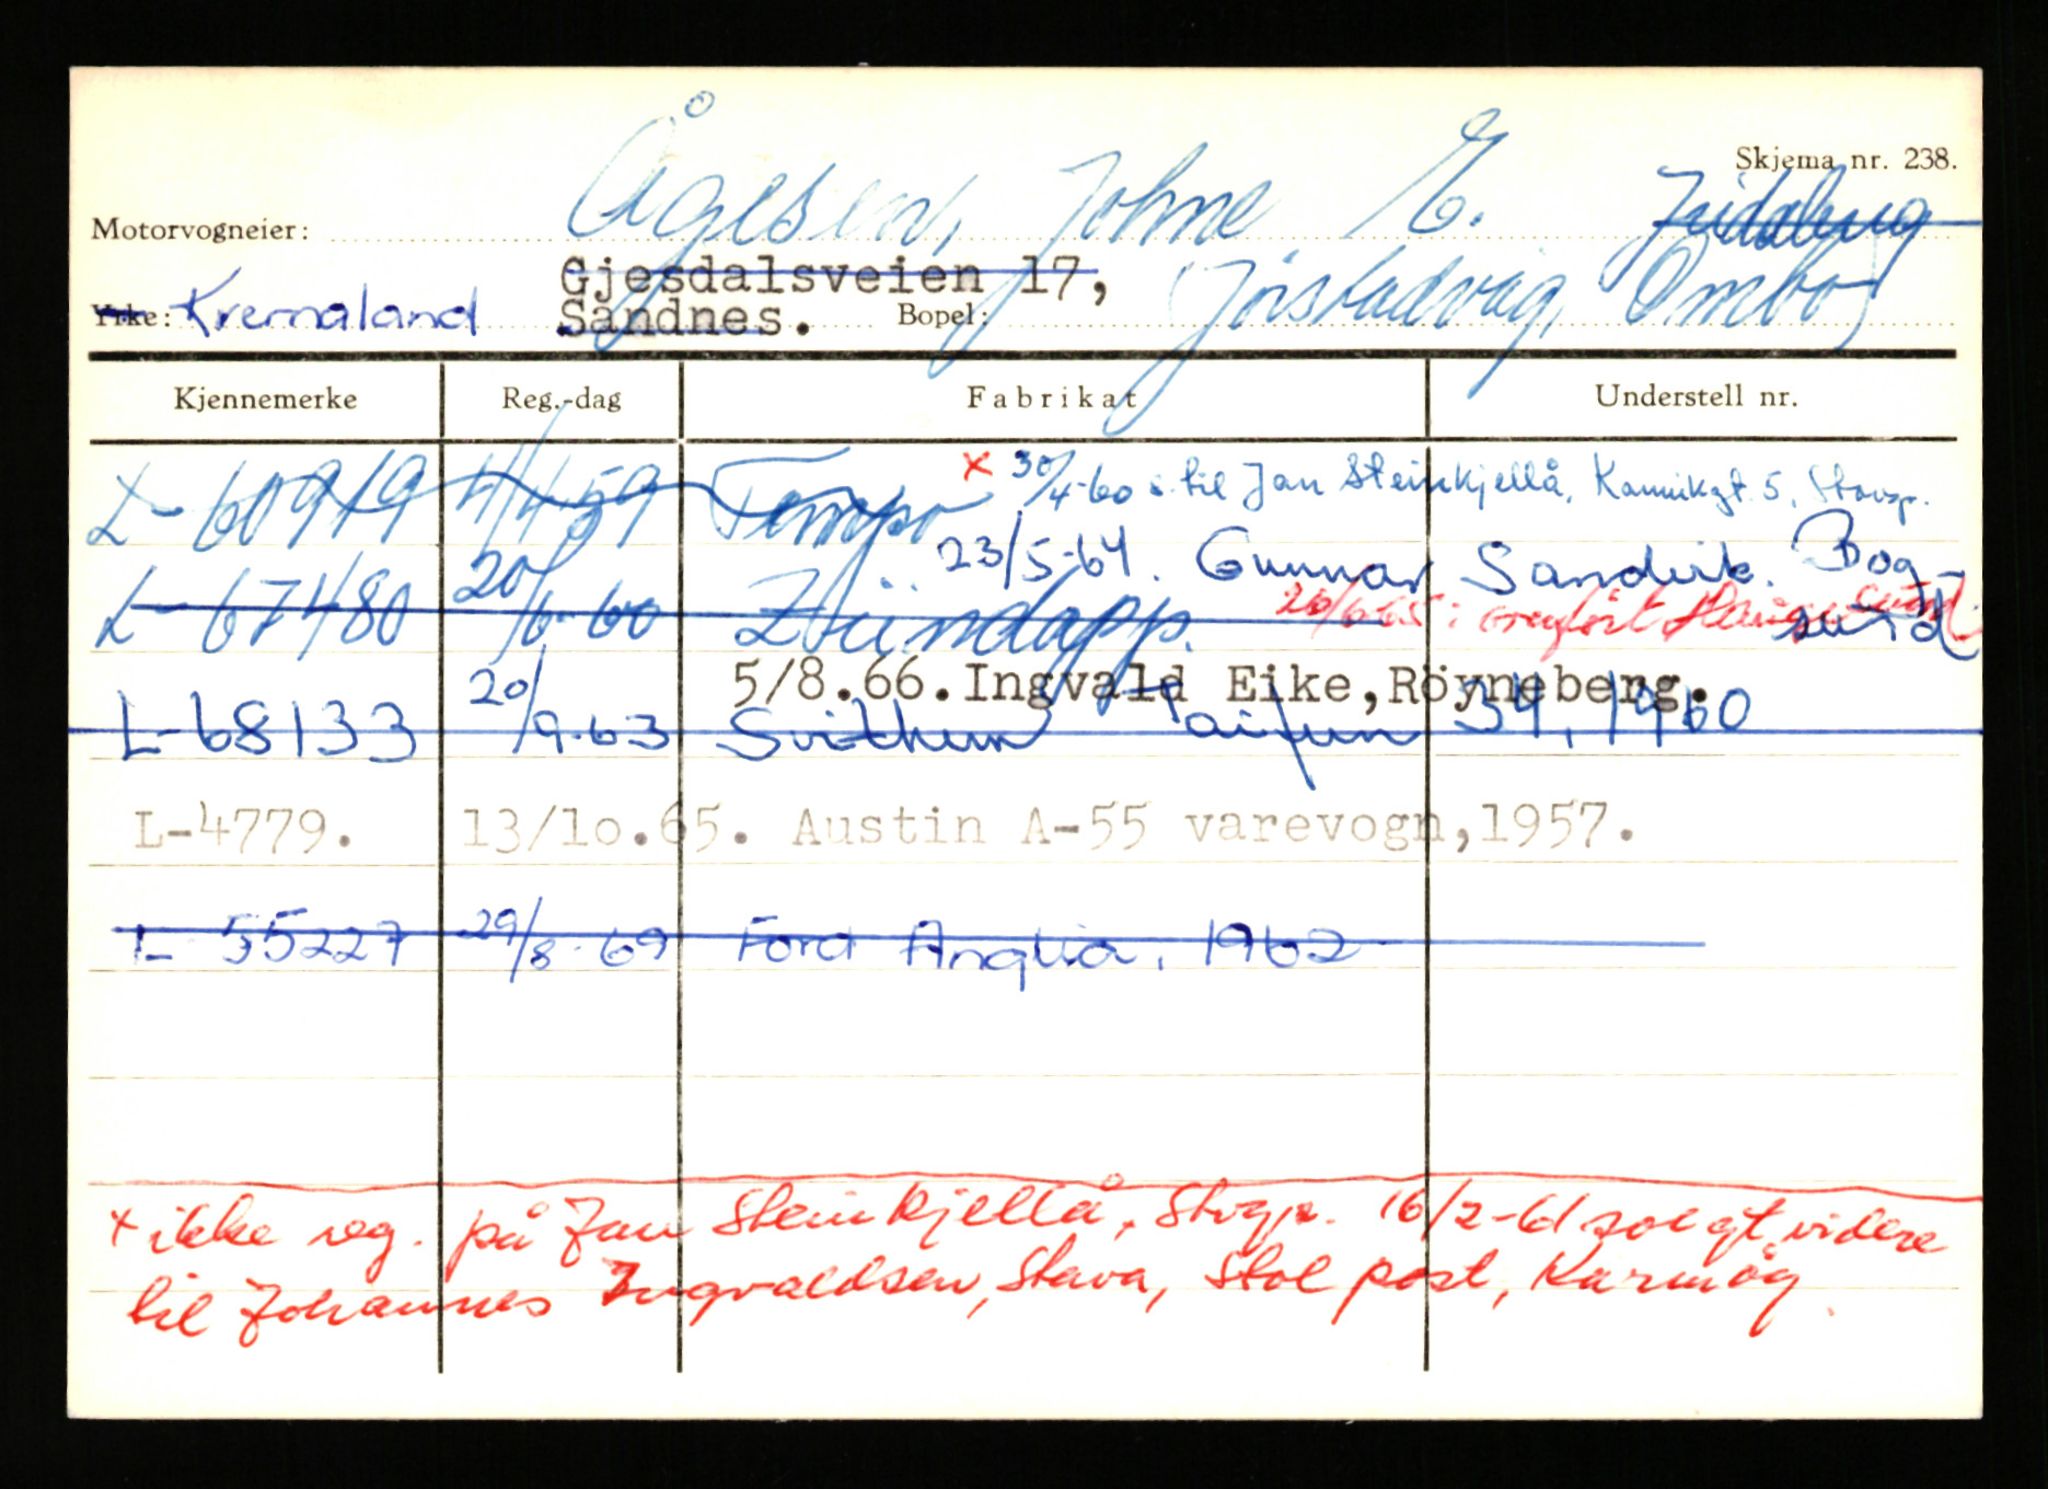 Skjema nr. 238.
Motorvogneier: Ågesen, Johne E.
Gjesdalsveien 17,
Yrke: Kremaland Sandnes. Bopel: Jøistadvåg, Ombo
Kjennemerke Reg.-dag Fabrikat Understell nr.
x 30/4-60 s. til Jan Steinkjellå, Kannikgt. 5, Stavgr.
L-60919 4/4 59 Tempo
23/5-64. Gunnar Sandvik. Bog-
sund
L-67480 20/6-60 Zündapp. 26/6-65: overført Haugesund
5/8.66. Ingvald Eike, Röyneberg.
L-68133 20/9-63 Svithun Taifun 34, 1960
L-4779. 13/10.65. Austin A-55 varevogn, 1957.
L-55227 29/8-69 Ford Anglia, 1962
x ikke reg. på Jan Steinkjellå, Stvgr. 16/2-61 solgt videre
til Johannes Ingvaldsen, Stava, Stol post, Karmøy.